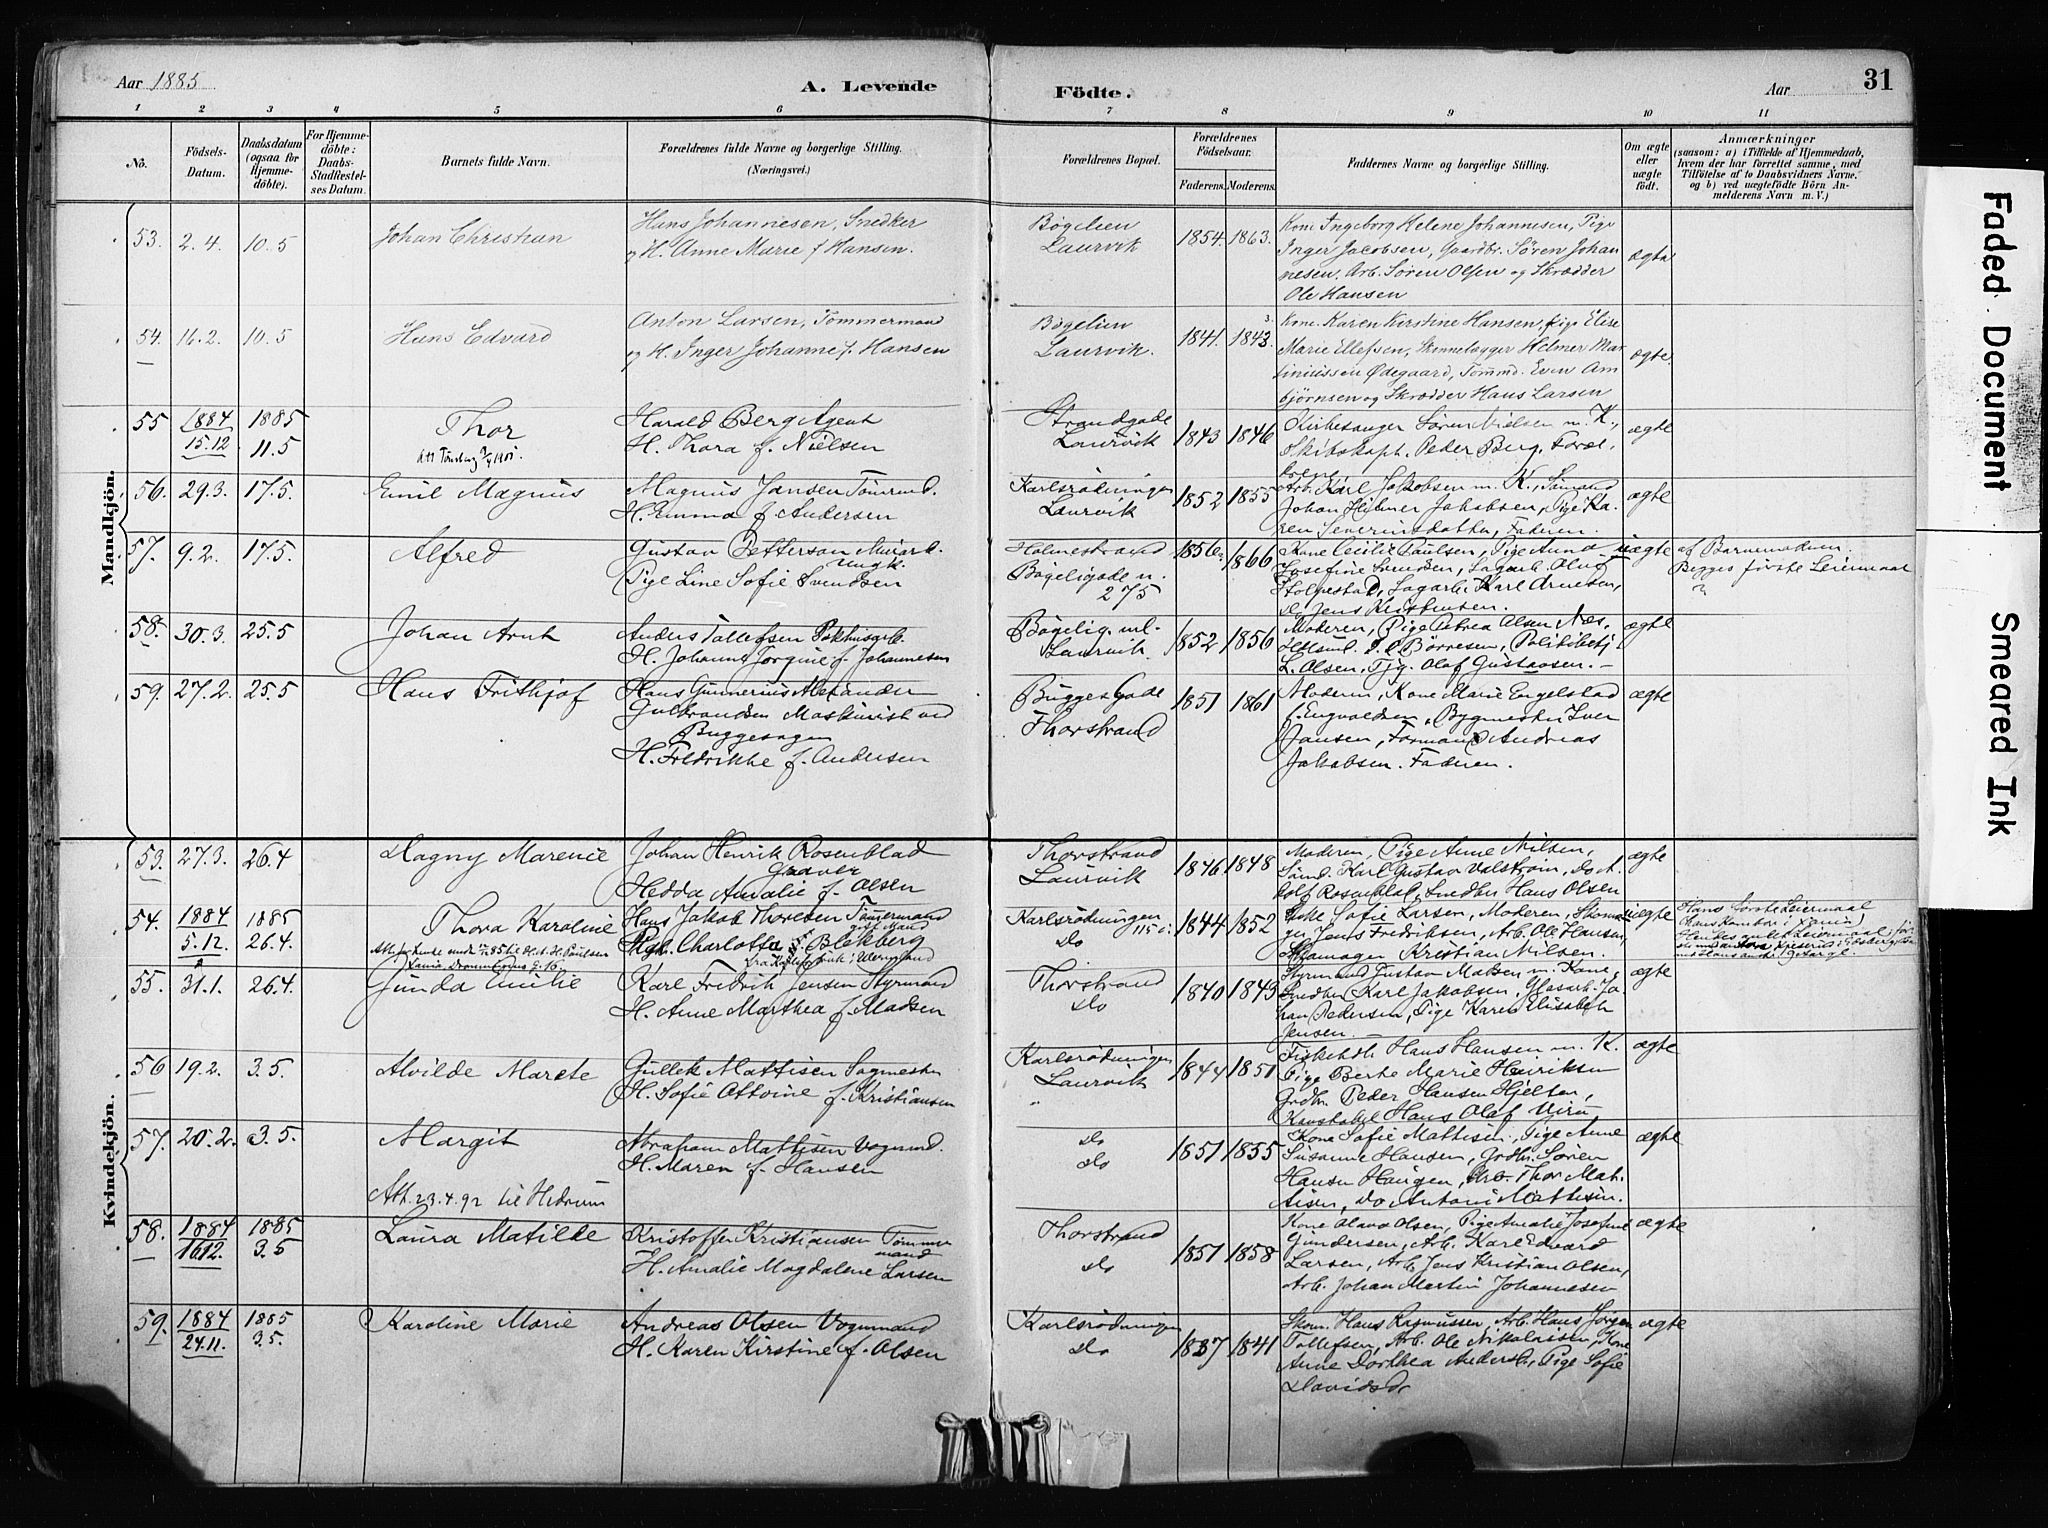 Aar 1885
A. Levende
Födte.
Aar
31
1 2 3 4 5 6 7 8 9 10 11
No.
Födsels-Datum.
Daabsdatum (ogsaa for Hjemme-döbte).
For Hjemme-döbte: Daabs-Stadfæstel-ses Datum.
Barnets fulde Navn.
Forældrenes fulde Navne og borgerlige Stilling.
(Næringsvei.)
Forældrenes Bopæl.
Forældrenes Födselsaar.
Faderens. Moderens.
Faddernes Navne og borgerlige Stilling.
Om ægte eller uægte födt.
Anmærkninger
(saasom: a) i Tilfælde af Hjemmedaab,
hvem der har forrettet samme, med
Tilföielse af to Daabsvidners Navne.
og b) ved uægtefödte Börn An-
melderens Navn m. V.)
Mandkjön.
53. 2.4. 10.5 Johan Christian
Hans Johannesen, Snedker
og H. Anne Marie f. Hansen.
Bøgelien
Laurvik
1854. 1863.
Kone Ingeborg Helene Johannesen, Pige
Inger Jacobsen, Gaardbr. Søren Johan-
nesen, Arb. Søren Olsen og Skrædder
Ole Hansen
ægte
54. 16.2. 10.5 Hans Edvard
Anton Larsen, Tømmermand
og H. Inger Johanne f. Hansen
Bøgelien
Laurvik.
1841. 1843.
Kone Karen Kirstine Hansen, Pige Elise
Marie Ellefsen, Helmer Mar-
tiniussen Ødegaard, Tømmd. Even Am-
bjørnsen og Skrædder Hans Larsen
ægte.
55 1884 15.12 1885 11.5 Thor
Harald Berg Agent
H. Thora f. Nielsen
Strandgade
Laurvik
1843 1846
Kirkesanger Søren Nielsen m. K.,
Skibskapt. Peder Berg, Foræl-
drene
ægte
56. 29.3. 17.5. Emil Magnus
Magnus Jansen Tømrmd.
H. Emma f. Andersen
Karlsrødningen
Laurvik
1852 1855
Arb. Karl Jakobsen m. K., Sømand
Johan Hilmer Jakobsen, Pige Ka-
ren Severinsdatter, Faderen.
ægte
57. 9.2. 17.5. Alfred
Gustav Petterson Murarb.
Ungk.
Pige Line Sofie Svendsen
Holmestrand
Bøgeligade n.
275
1856 1866
Kone Cecilie Paulsen, Pige Anna
Josefine Svendsen, Sagarb. Oluf
Stolpestad, Sagarb. Karl Arnesen,
do Jens Kristensen.
uægte
af Barnemoderen.
Begges første Leiermaal
58. 30.3. 25.5 Johan Arnt
Anders Tollefsen Pakhusarb.
H. Johanne Jørgine f. Johannesen
Bøgelig.
Laurvik.
1852 1856
Moderen, Pige Petrea Olsen Næs,
Børresen, Politibetj.
L. Olsen, Tjg. Olaf Gustavsen.
ægte
59. 27.2. 25.5 Hans Frithjof
Hans Gunnerius Alexander
Gulbrandsen Maskinist ved
Buggesagen
H. Fredrikke f. Andersen
Bugges Gade
Thorstrand
1851 1861
Moderen, Kone Marie Engelstad
f. Engvoldsen, Bygmester Iver
Jansen, Formand Andreas
Jakobsen. Faderen.
ægte
Kvindekjön.
53. 27.3. 26.4 Dagny Marenie
Johan Henrik Rosenblad
Graver
Hedda Amalie f. Olsen
Thorstrand
Laurvik
1846 1848
Moderen, Pige Anne Nilsen,
Sømd. Karl Gustav Valstrøm, Do A-
dolf Rosenblad, Snedker Hans Olsen
ægte
54. 1884 5.12. 1885 26.4. Thora Karoline
Hans Jakob Thorlesen Tømmermand
gift Mand
Charlotta Blekberg
Karlsrødningen 115
Do
1844 1852
Enke Sofie Larsen, Moderen,
Jens Fredriksen, Arb. Ole Hansen,
Kristian Nilsen.
uægte
Hans første Leiermaal
55. 31.1. 26.4. Gunda Emilie
Karl Fredrik Jensen Styrmand
H. Anne Marthea f. Madsen
Thorstrand
Do
1840 1845
Styrmand Gustav Madsen m. Kone,
Snedker Karl Jakobsen, Glasarb. Jo-
han Pedersen, Pige Karen Elisabeth
Jensen.
ægte
56 19.2. 3.5. Alvilde Marete
Gullek Mattisen Sagmester
H. Sofie Ottoine f. Kristiansen
Karlsrødningen
Laurvik
1844 1851
Fiskehdlr. Hans Hansen m. K.
Pige Berte Marie Henriksen
Grdbr. Peder Hansen Hjelten,
Konstabel Hans Olaf
ægte
57. 20.2. 3.5. Margit
Afh. 23.4.92 til Hedrum
Abraham Mattisen Vognmd.
H. Maren f. Hansen
Do
Do
1851 1855
Kone Sofie Mattisen, Pige Anne
Susanne Hansen, Grdbr. Søren
Hansen Haugen, Arb. Thor Mat-
tisen, Do Anton Mattisen.
ægte
58. 1884 16.12. 1885 3.5 Laura Matilde
Kristoffer Kristiansen Tømmer
mand
H. Amalie Magdalene Larsen
Thorstrand
Do
1851 1858
Kone Olava Olsen, Pige Amalie Josefine
Gundersen, Arb. Karl Edvard
Larsen, Arb. Jens Kristian Olsen,
Arb. Johan Martin Johannesen
ægte
59. 1884 24.11. 1885 3.5. Karoline Marie
Andreas Olsen Vognmand
H. Karen Kirstine f. Olsen
Karlsrødningen
Do
1837 1841
Skom. Hans Rasmussen, Arb. Hans Jørgen
Tollefsen, Arb. Ole Nikolaisen, Kone
Anne Dorthea Andersdr., Pige Sofie
Davidsdr
ægte
Faded Document
Smeared Ink